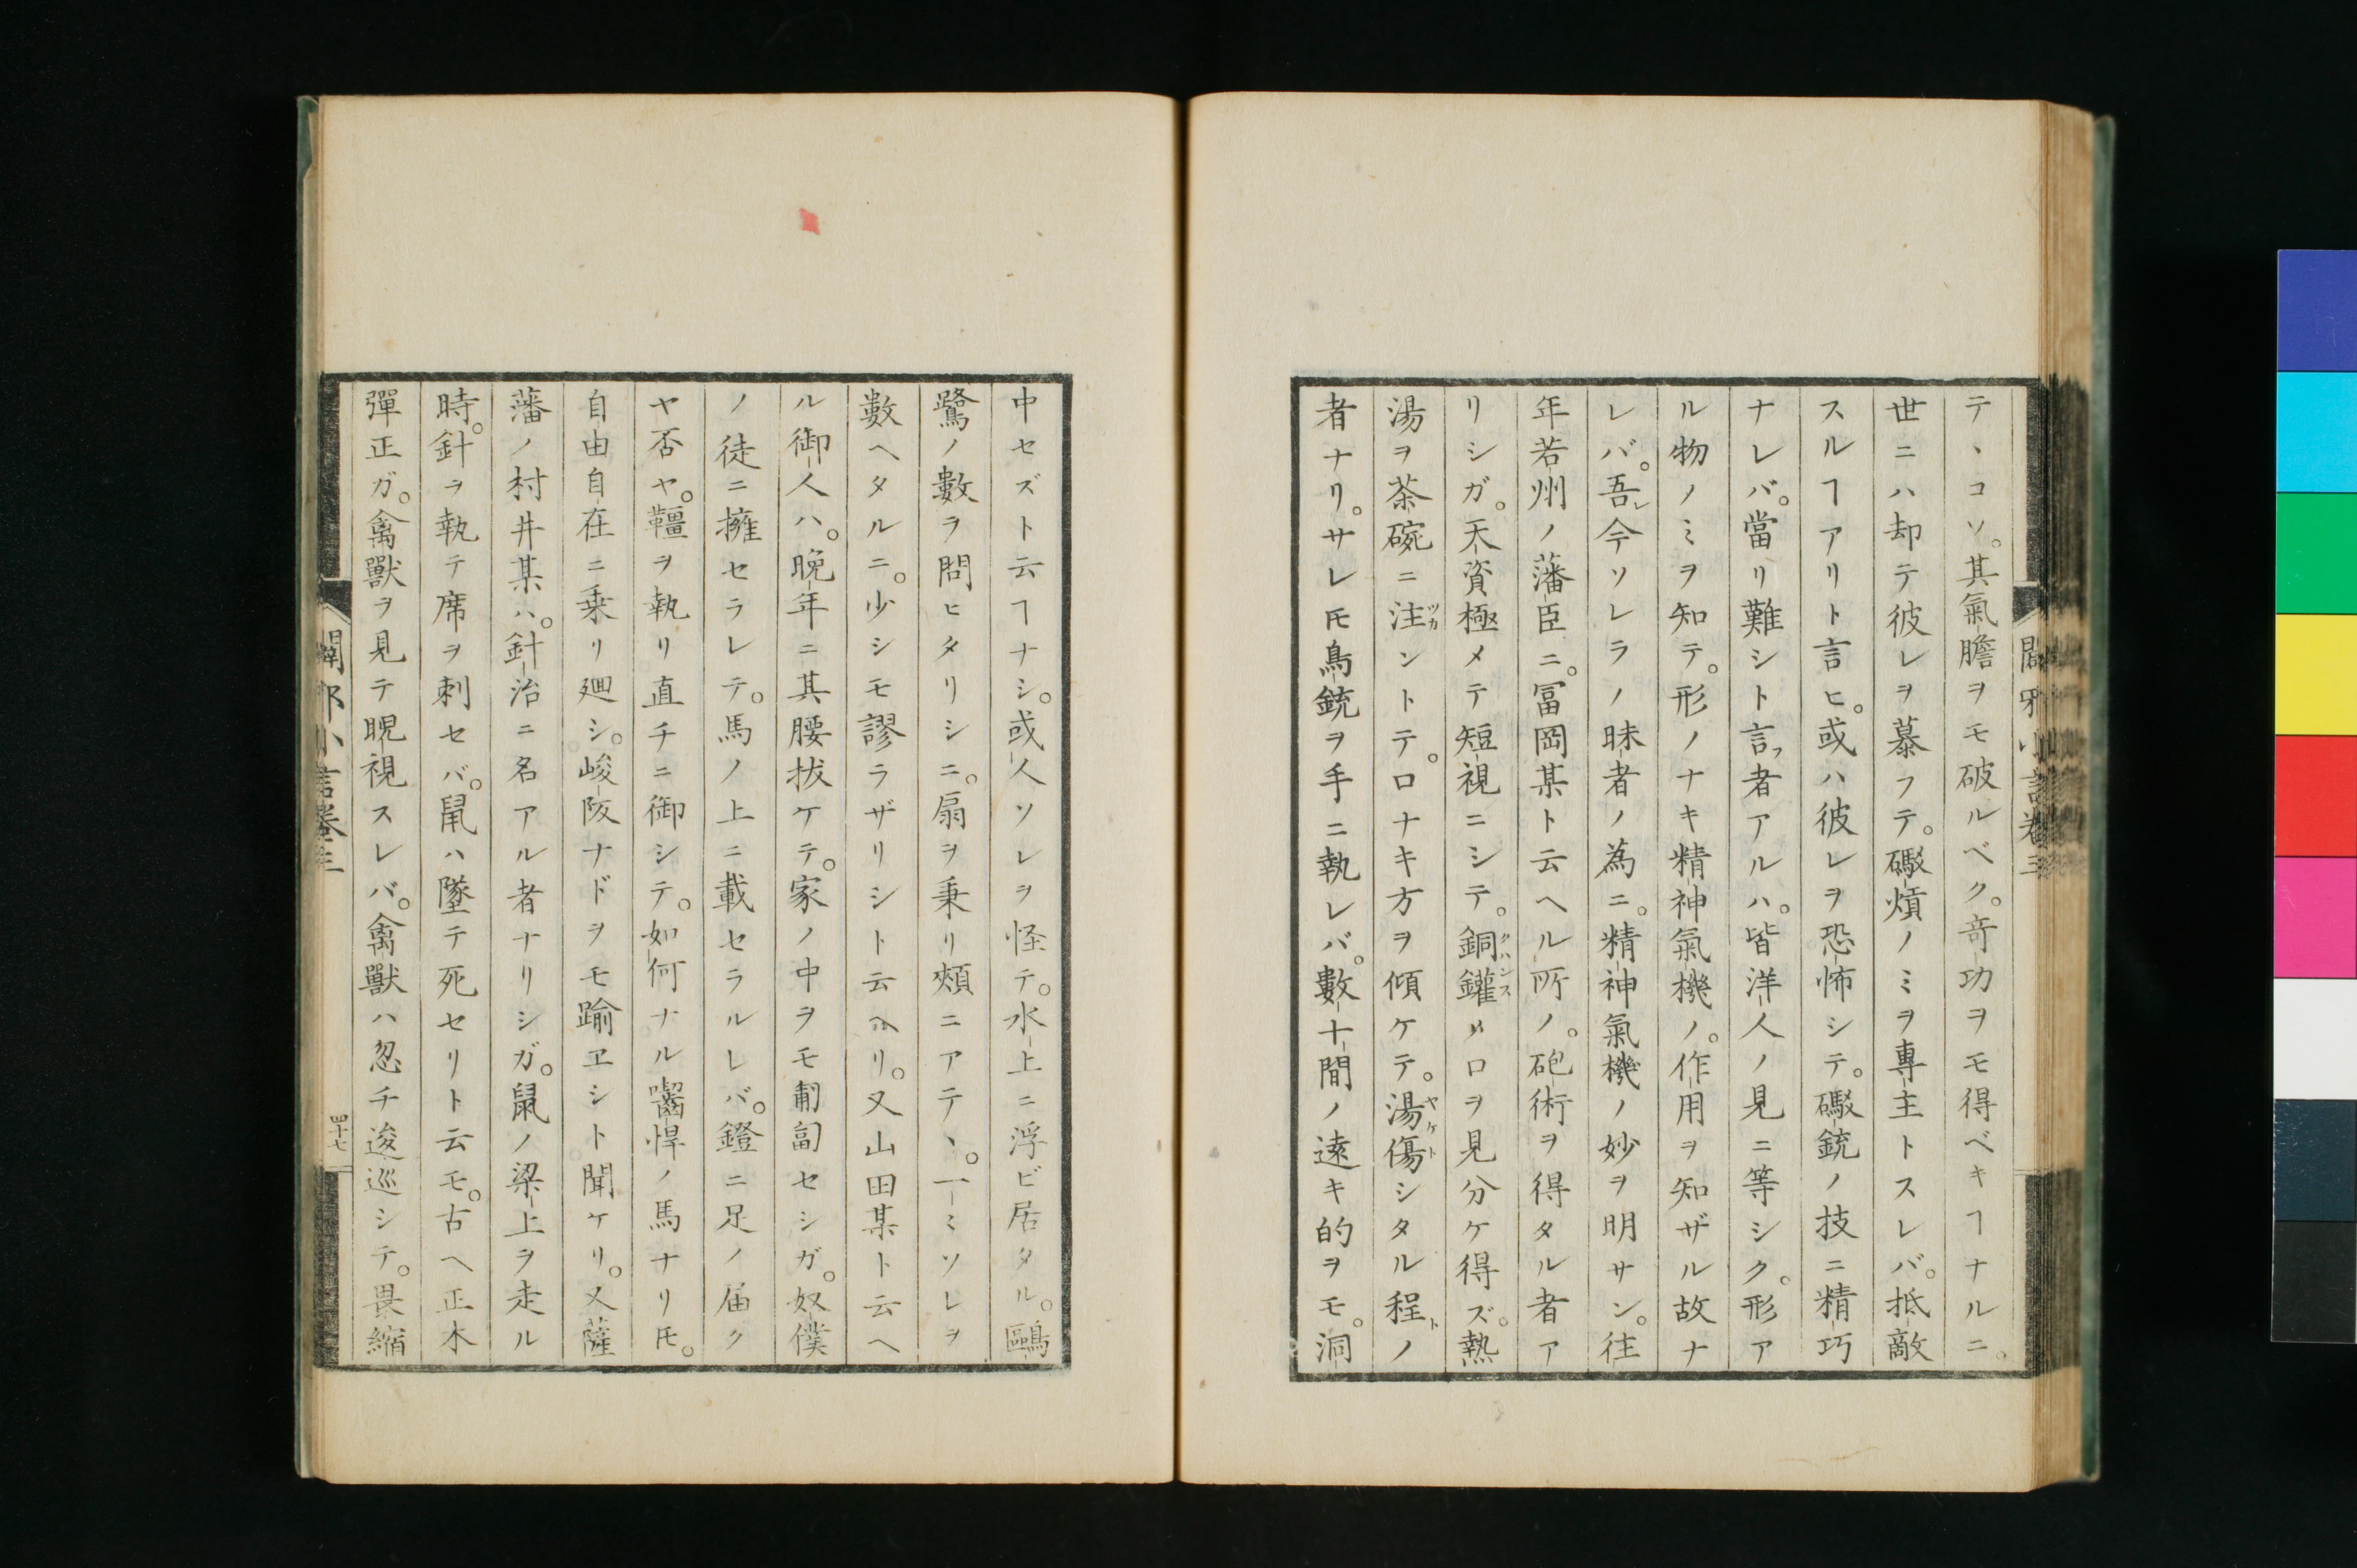 テヽコソ。其氣膽ヲモ破ルベク。竒功ヲモ得ベキヿナルニ。
世ニハ却テ彼レヲ慕フテ。礮熕ノミヲ專主トスレバ。抵敵
スルヿアリト言ヒ。或ハ彼レヲ恐怖シテ。礮銃ノ技ニ精巧
ナレバ。當リ難シト言フ者アルハ。皆洋人ノ見ニ等シク。形ア
ル物ノミヲ知テ。形ノナキ精神氣機ノ。作用ヲ知ザル故ナ
レバ。吾レ今ソレラノ昧者ノ為ニ。精神氣機ノ妙ヲ明サン。往
年若州ノ藩臣ニ。冨岡某ト云ヘル所ノ。砲術ヲ得タル者ア
リシガ。天資極メテ短視ニシテ。銅鑵ノ口ヲ見分ケ得ズ。熱
湯ヲ茶碗ニ注ントテ。口ナキ方ヲ傾ケテ。湯傷シタル程ノ
者ナリ。サレ𪜈鳥銃ヲ手ニ執レバ。數十間ノ遠キ的ヲモ。洞
中セズト云ヿナシ。或人ソレヲ怪テ。水上ニ浮ビ居タル。鷗
鷺ノ數ヲ問ヒタリシニ。扇ヲ秉リ頰ニアテヽ。一ミソレヲ
數ヘタルニ。少シモ謬ラザリシト云ヘリ。又山田某ト云ヘ
ル御人ハ。晩年ニ其腰拔ケテ。家ノ中ヲモ匍匐セシガ。奴僕
ノ徒ニ擁セラレテ。馬ノ上ニ載セラルレバ。鐙ニ足ノ届ク
ヤ否ヤ。韁ヲ執リ直チニ御シテ。如何ナル齧悍ノ馬ナリ𪜈。
自由自在ニ乗リ廻シ。峻阪ナドヲモ踰ヱシト聞ケリ。又薩
藩ノ村井某ハ。針治ニ名アル者ナリシガ。鼠ノ梁上ヲ走ル
時。針ヲ執テ席ヲ刺セバ。鼠ハ墜テ死セリト云モ。古ヘ正木
彈正ガ。禽獸ヲ見テ睨視スレバ。禽獸ハ忽チ逡巡シテ。畏縮
闢邪小言卷三
四十七